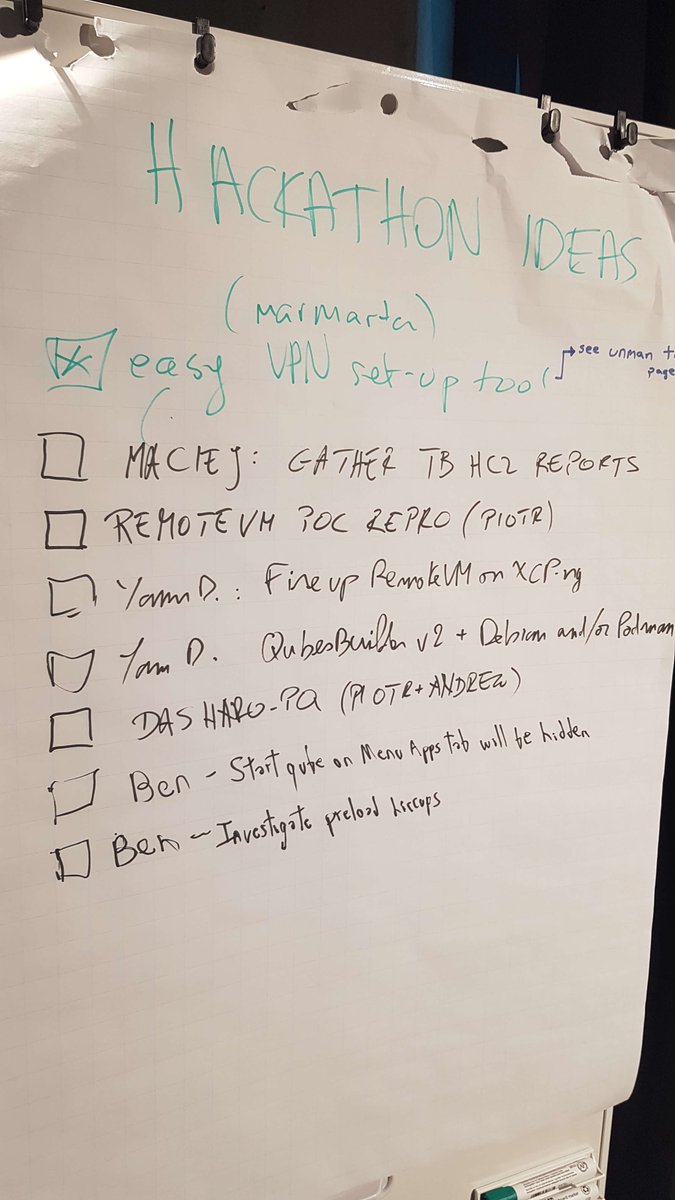 HACKATHON IDEAS
(marmarta)
easy VPN set-up tool
see unman
page
MACIEJ: GATHER TB HCL REPORTS
REMOTEVM POC REPRO (PIOTR)
Yann D.: Fine up RemoteVM on XCP-ng
Yann D. QubesBuilder v2 + Debian and/or Podman
DASHARO-PQ (PIOTR+ANDREW)
Ben - Start qube on Menu Apps tab will be hidden
Ben - Investigate preload hiccups